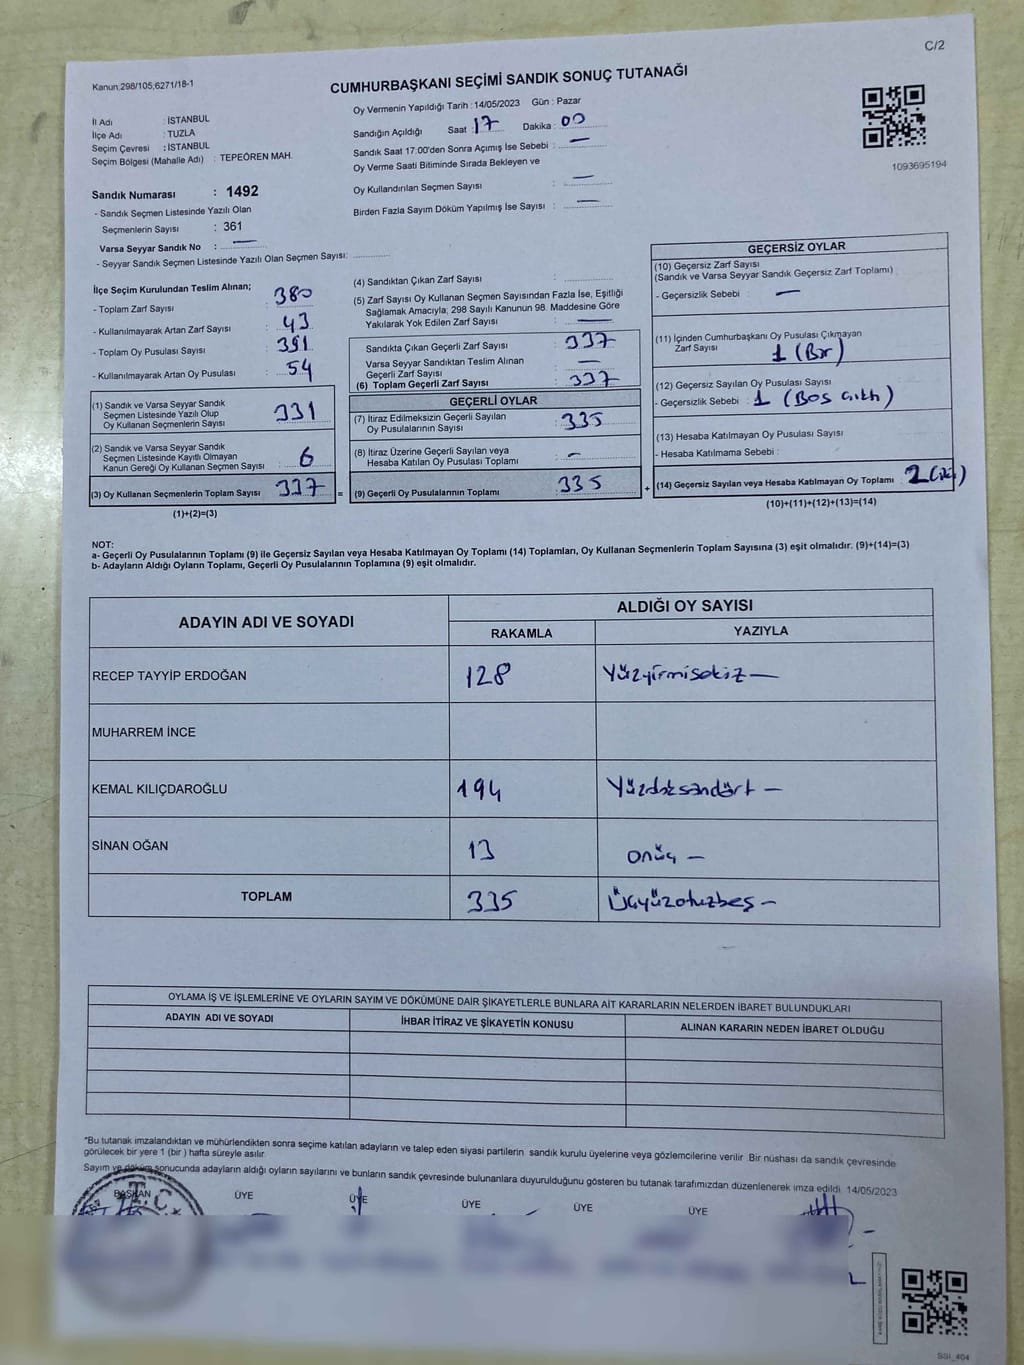 C/2
Kanun:298/105;6271/18-1
CUMHURBAŞKANI SEÇİMİ SANDIK SONUÇ TUTANAĞI
İl Adı : İSTANBUL
İlçe Adı : TUZLA
Seçim Çevresi : İSTANBUL
Seçim Bölgesi (Mahalle Adı) : TEPEÖREN MAH.
Sandık Numarası : 1492
- Sandık Seçmen Listesinde Yazılı Olan
Seçmenlerin Sayısı : 361
Varsa Seyyar Sandık No : —
- Seyyar Sandık Seçmen Listesinde Yazılı Olan Seçmen Sayısı:
Oy Vermenin Yapıldığı Tarih : 14/05/2023 Gün : Pazar
Sandığın Açıldığı Saat : 17 Dakika : 00
Sandık Saat 17:00'den Sonra Açımış İse Sebebi : —
Oy Verme Saati Bitiminde Sırada Bekleyen ve
Oy Kullandırılan Seçmen Sayısı : —
Birden Fazla Sayım Döküm Yapılmış İse Sayısı : —
1093695194
İlçe Seçim Kurulundan Teslim Alınan;
- Toplam Zarf Sayısı : 380
- Kullanılmayarak Artan Zarf Sayısı : 43
- Toplam Oy Pusulası Sayısı : 391
- Kullanılmayarak Artan Oy Pusulası : 54
(1) Sandık ve Varsa Seyyar Sandık
Seçmen Listesinde Yazılı Olup
Oy Kullanan Seçmenlerin Sayısı : 331
(2) Sandık ve Varsa Seyyar Sandık
Seçmen Listesinde Kayıtlı Olmayan
Kanun Gereği Oy Kullanan Seçmen Sayısı : 6
(3) Oy Kullanan Seçmenlerin Toplam Sayısı 337 =
(1)+(2)=(3)
(4) Sandıktan Çıkan Zarf Sayısı :
(5) Zarf Sayısı Oy Kullanan Seçmen Sayısından Fazla İse, Eşitliği
Sağlamak Amacıyla; 298 Sayılı Kanunun 98. Maddesine Göre
Yakılarak Yok Edilen Zarf Sayısı : —
Sandıkta Çıkan Geçerli Zarf Sayısı : 337
Varsa Seyyar Sandıktan Teslim Alınan
Geçerli Zarf Sayısı : —
(6) Toplam Geçerli Zarf Sayısı : 337
GEÇERLİ OYLAR
(7) İtiraz Edilmeksizin Geçerli Sayılan
Oy Pusulalarının Sayısı : 335
(8) İtiraz Üzerine Geçerli Sayılan veya
Hesaba Katılan Oy Pusulası Toplamı : —
(9) Geçerli Oy Pusulalarının Toplamı : 335 +
GEÇERSİZ OYLAR
(10) Geçersiz Zarf Sayısı
(Sandık ve Varsa Seyyar Sandık Geçersiz Zarf Toplamı)
- Geçersizlik Sebebi : —
(11) İçinden Cumhurbaşkanı Oy Pusulası Çıkmayan
Zarf Sayısı 1 (Bir)
(12) Geçersiz Sayılan Oy Pusulası Sayısı
- Geçersizlik Sebebi : 1 (Boş çıktı)
(13) Hesaba Katılmayan Oy Pusulası Sayısı
- Hesaba Katılmama Sebebi :
(14) Geçersiz Sayılan veya Hesaba Katılmayan Oy Toplamı 2 (iki)
(10)+(11)+(12)+(13)=(14)
NOT:
a- Geçerli Oy Pusulalarının Toplamı (9) ile Geçersiz Sayılan veya Hesaba Katılmayan Oy Toplamı (14) Toplamları, Oy Kullanan Seçmenlerin Toplam Sayısına (3) eşit olmalıdır. (9)+(14)=(3)
b- Adayların Aldığı Oyların Toplamı, Geçerli Oy Pusulalarının Toplamına (9) eşit olmalıdır.
ADAYIN ADI VE SOYADI ALDIĞI OY SAYISI
RAKAMLA YAZIYLA
RECEP TAYYİP ERDOĞAN 128 Yüzyirmisekiz —
MUHARREM İNCE
KEMAL KILIÇDAROĞLU 194 Yüzdoksandört —
SİNAN OĞAN 13 onüç —
TOPLAM 335 Üçyüzotuzbeş —
OYLAMA İŞ VE İŞLEMLERİNE VE OYLARIN SAYIM VE DÖKÜMÜNE DAİR ŞİKAYETLERLE BUNLARA AİT KARARLARIN NELERDEN İBARET BULUNDUKLARI
ADAYIN ADI VE SOYADI İHBAR İTİRAZ VE ŞİKAYETİN KONUSU ALINAN KARARIN NEDEN İBARET OLDUĞU
*Bu tutanak imzalandıktan ve mühürlendikten sonra seçime katılan adayların ve talep eden siyasi partilerin sandık kurulu üyelerine veya gözlemcilerine verilir. Bir nüshası da sandık çevresinde
görülecek bir yere 1 (bir ) hafta süreyle asılır.
Sayım ve döküm sonucunda adayların aldığı oyların sayılarını ve bunların sandık çevresinde bulunanlara duyurulduğunu gösteren bu tutanak tarafımızdan düzenlenerek imza edildi. 14/05/2023
BAŞKAN ÜYE ÜYE ÜYE ÜYE ÜYE
T.C.
SSI_404